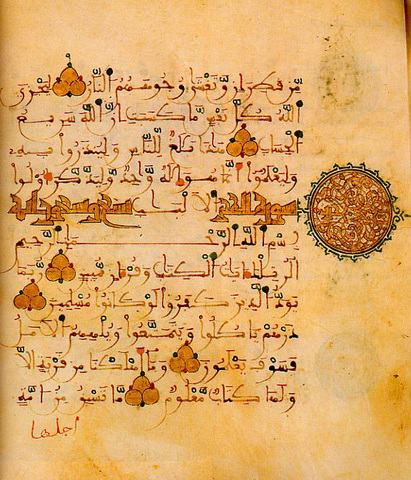 مِّن قَطِرَانٍ وَتَغْشَىٰ وُجُوهَهُمُ النَّارُ لِيَجْزِيَ
اللَّهُ كُلَّ نَفْسٍ مَّا كَسَبَتْ إِنَّ اللَّهَ سَرِيعُ
الْحِسَابِ هَٰذَا بَلَٰغٌ لِّلنَّاسِ وَلِيُنذَرُوا بِهِ
وَلِيَعْلَمُوا أَنَّمَا هُوَ إِلَٰهٌ وَٰحِدٌ وَلِيَذَّكَّرَ أُولُوا
سورة الحجر الْأَلْبَٰبِ تسع وتسعون اية
بِسْمِ اللَّهِ الرَّحْمَٰنِ الرَّحِيمِ
الر تِلْكَ ءَايَٰتُ الْكِتَٰبِ وَقُرْءَانٍ مُّبِينٍ رُّبَمَا
يَوَدُّ الَّذِينَ كَفَرُوا لَوْ كَانُوا مُسْلِمِينَ
ذَرْهُمْ يَأْكُلُوا وَيَتَمَتَّعُوا وَيُلْهِهِمُ الْأَمَلُ
فَسَوْفَ يَعْلَمُونَ وَمَا أَهْلَكْنَا مِن قَرْيَةٍ إِلَّا
وَلَهَا كِتَابٌ مَّعْلُومٌ مَّا تَسْبِقُ مِنْ أُمَّةٍ
أجلها